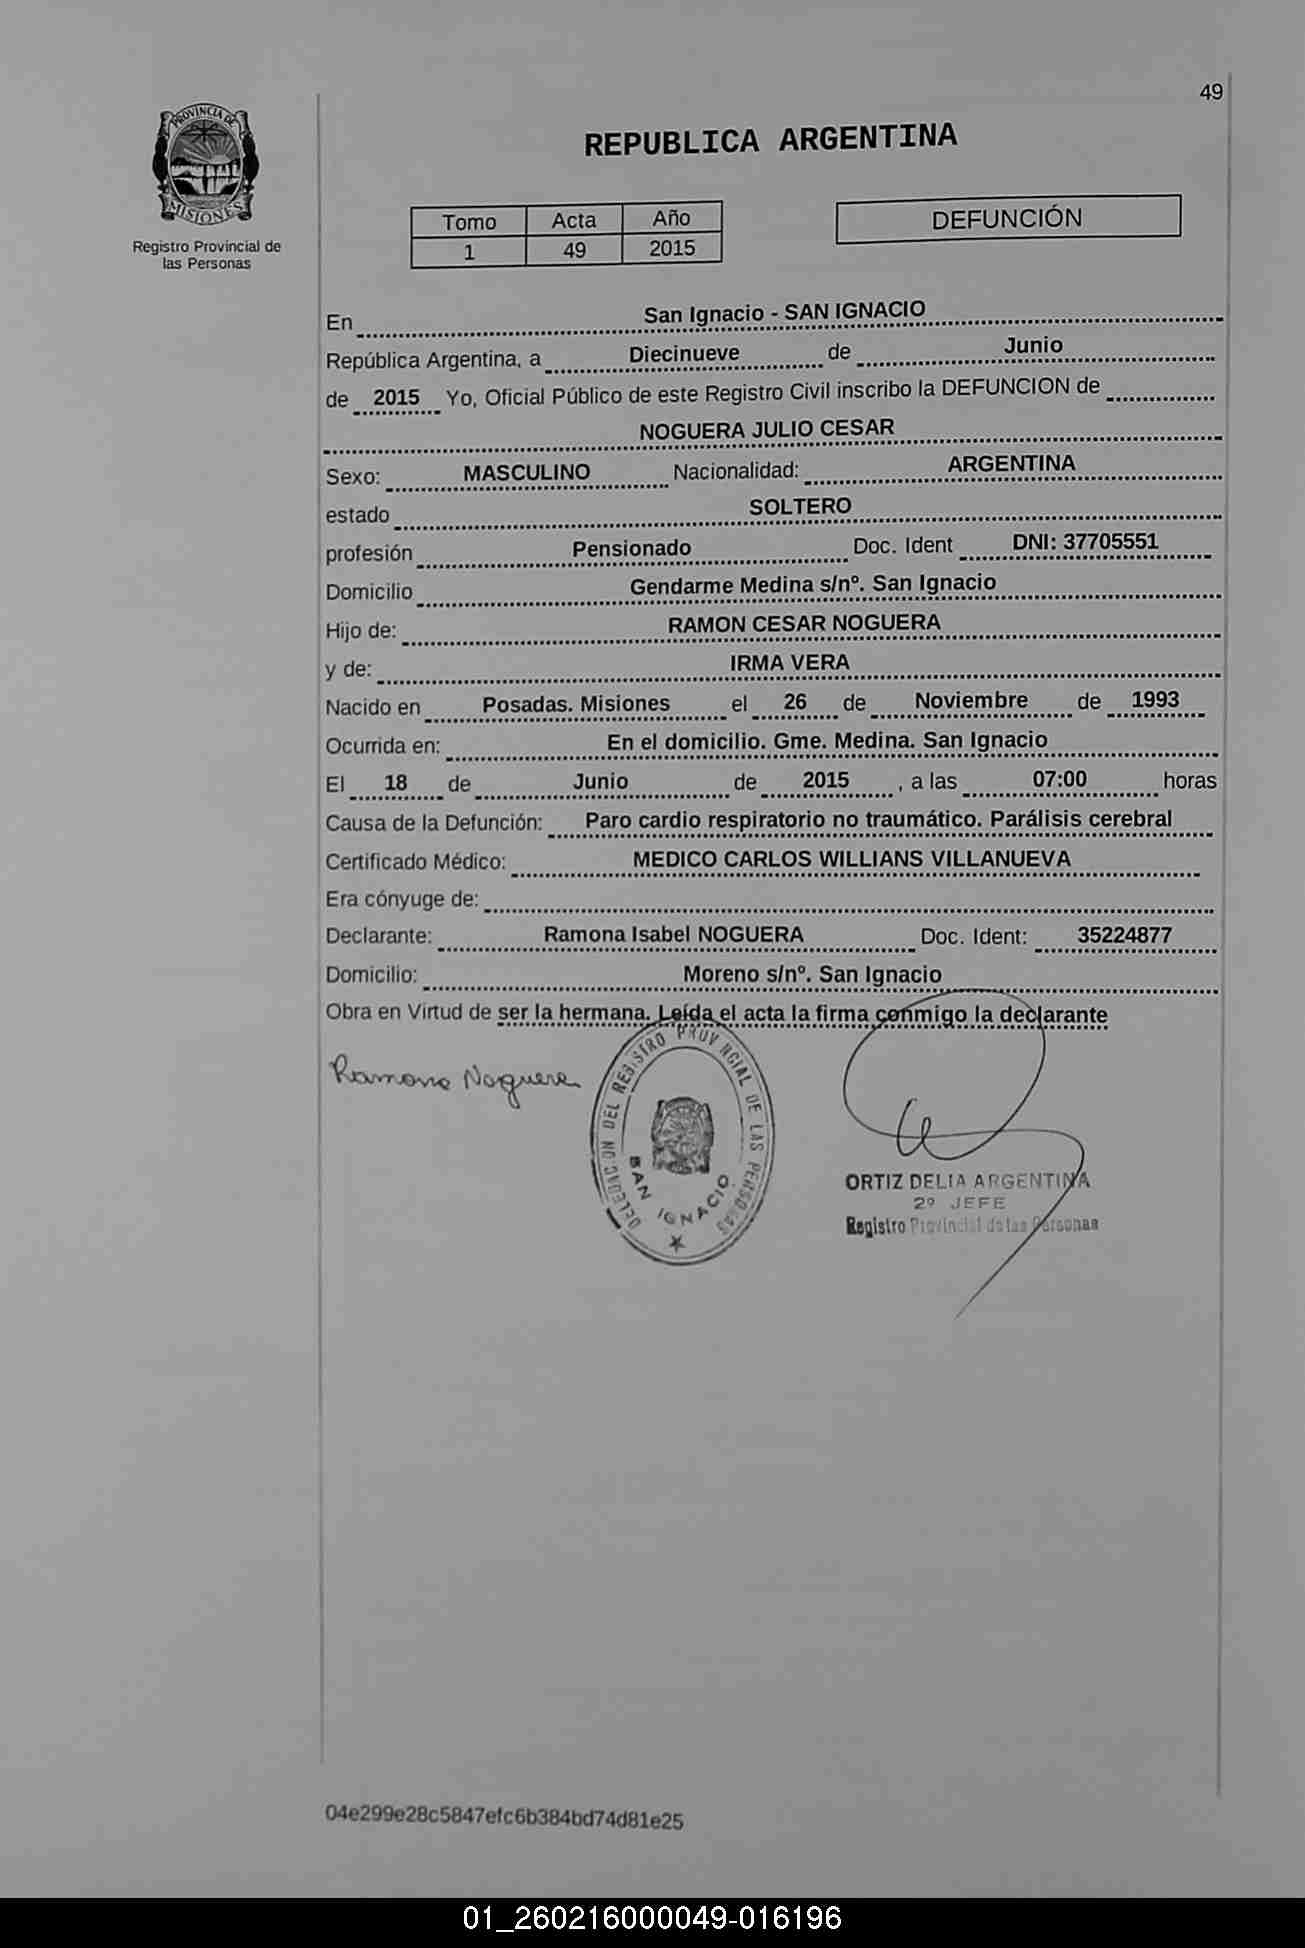 49
PROVINCIA DE
MISIONES
Registro Provincial de
las Personas
REPUBLICA ARGENTINA
Tomo Acta Año
1 49 2015
DEFUNCIÓN
En San Ignacio - SAN IGNACIO
República Argentina, a Diecinueve de Junio
de 2015 Yo, Oficial Público de este Registro Civil inscribo la DEFUNCION de
NOGUERA JULIO CESAR
Sexo: MASCULINO Nacionalidad: ARGENTINA
estado SOLTERO
profesión Pensionado Doc. Ident DNI: 37705551
Domicilio Gendarme Medina s/nº. San Ignacio
Hijo de: RAMON CESAR NOGUERA
y de: IRMA VERA
Nacido en Posadas. Misiones el 26 de Noviembre de 1993
Ocurrida en: En el domicilio. Gme. Medina. San Ignacio
El 18 de Junio de 2015 , a las 07:00 horas
Causa de la Defunción: Paro cardio respiratorio no traumático. Parálisis cerebral
Certificado Médico: MEDICO CARLOS WILLIANS VILLANUEVA
Era cónyuge de:
Declarante: Ramona Isabel NOGUERA Doc. Ident: 35224877
Domicilio: Moreno s/nº. San Ignacio
Obra en Virtud de ser la hermana. Leída el acta la firma conmigo la declarante
Ramona Noguera
DELEGACION DEL REGISTRO PROVINCIAL DE LAS PERSONAS
SAN IGNACIO
ORTIZ DELIA ARGENTINA
2º JEFE
Registro Provincial de las Personas
04e299e28c5847efc6b384bd74d81e25
01_260216000049-016196